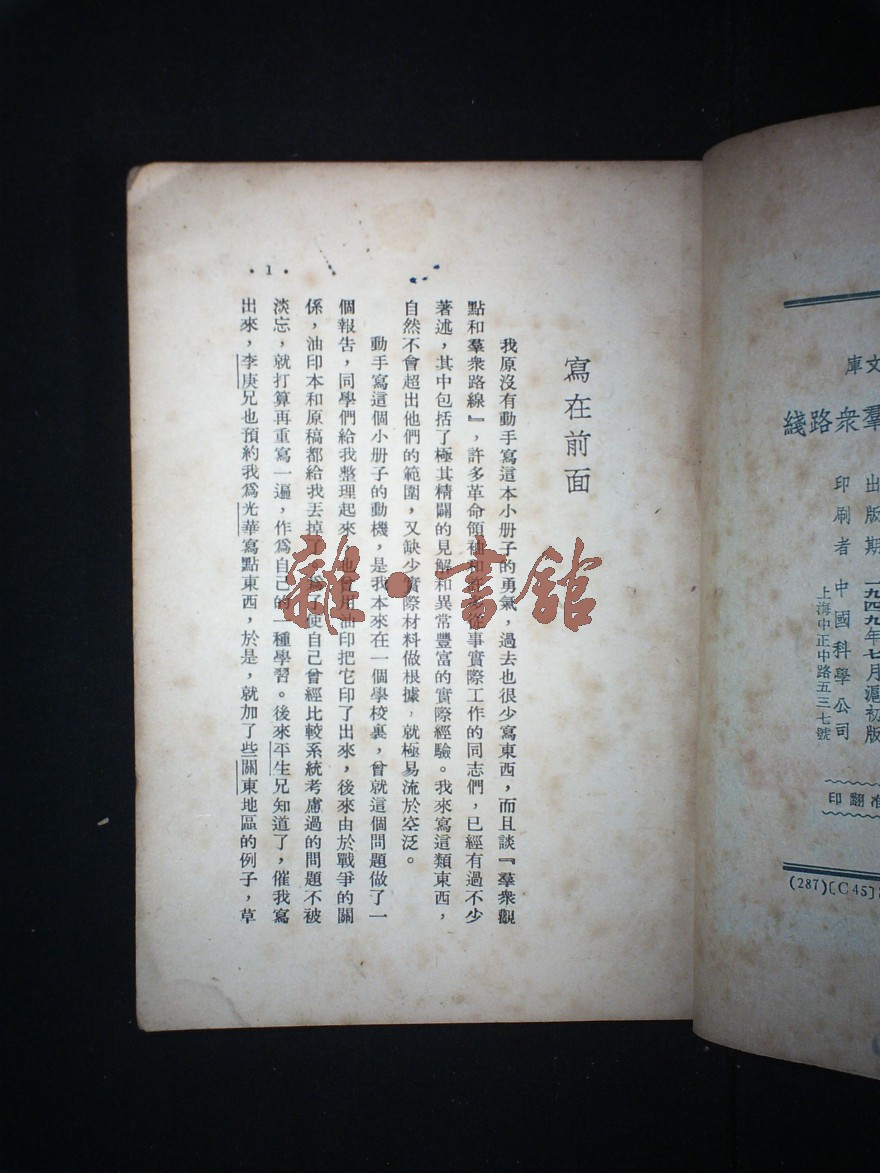 文庫
羣衆路綫
出版期 一九四九年七月滬初版
印刷者 中國科學公司
上海中正中路五三七號
准翻印
(287)[C45]
寫在前面
我原沒有動手寫這本小册子的勇氣，過去也很少寫東西，而且談『羣衆觀
點和羣衆路線』，許多革命領袖和 從事實際工作的同志們，已經有過不少
著述，其中包括了極其精闢的見解和異常豐富的實際經驗。我來寫這類東西，
自然不會超出他們的範圍，又缺少實際材料做根據，就極易流於空泛。
動手寫這個小册子的動機，是我本來在一個學校裏，曾就這個問題做了一
個報告，同學們給我整理起來，也曾用油印把它印了出來，後來由於戰爭的關
係，油印本和原稿都給我丟掉了。爲了使自己曾經比較系統考慮過的問題不被
淡忘，就打算再重寫一遍，作爲自己的一種學習。後來平生兄知道了，催我寫
出來，李庚兄也預約我爲光華寫點東西，於是，就加了些關東地區的例子，草
•1•
雜·書館